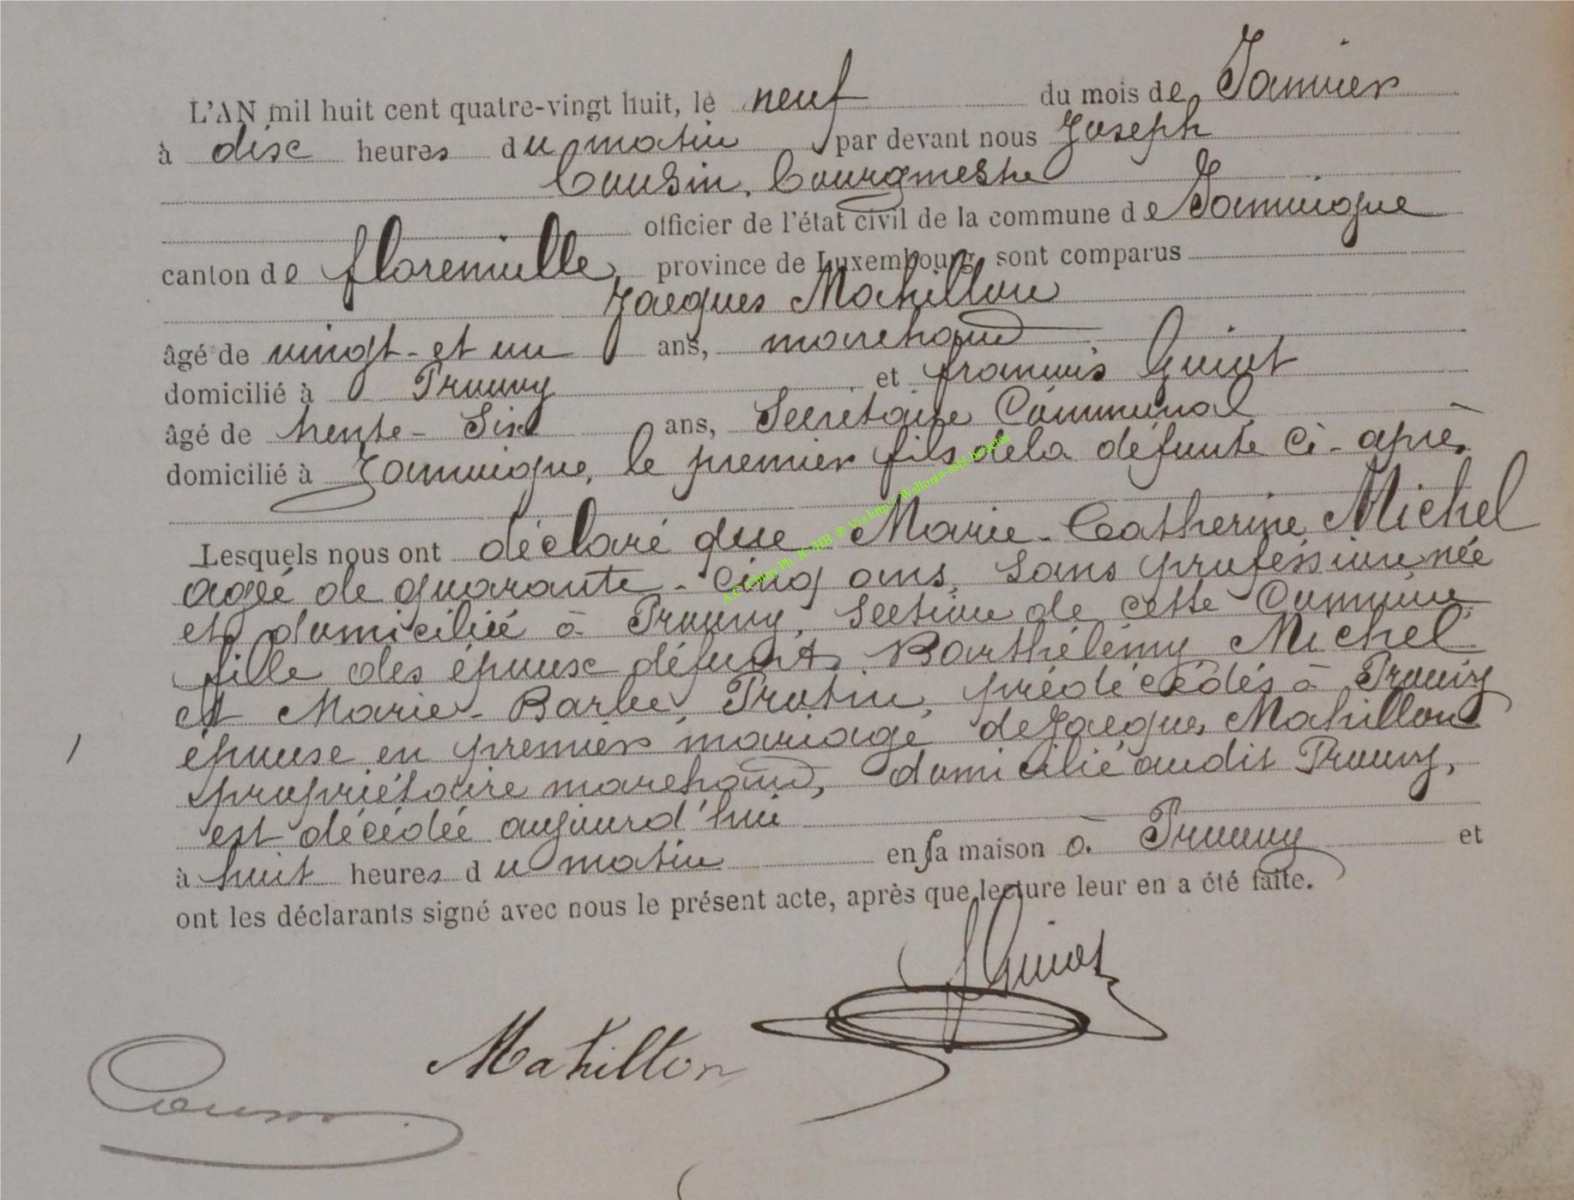 L'AN mil huit cent quatre-vingt huit, le neuf du mois de Janvier
à dix heures du matin par devant nous Joseph
Cousin, Bourgmestre
officier de l'état civil de la commune de Jamoigne
canton de florenville, province de Luxembourg, sont comparus
Jacques Mahillon
âgé de vingt-et un ans, marchand
domicilié à Prouvy et francois Guiot
âgé de trente-Six ans, Secrétaire Communal,
domicilié à Jamoigne, le premier fils de la défunte ci-après
Lesquels nous ont déclaré que Marie-Catherine Michel
agée de quarante-cinq ans, sans profession née
et domiciliée à Prouvy, Section de cette Commune,
fille des époux défunts Barthélemy Michel
et Marie-Barbe, prédécédés à Prouvy
épouse en premier mariage de Jacques Mahillon
propriétaire marchand, domicilié audit Prouvy,
est décédée aujourd'hui
à huit heures du matin en sa maison à Prouvy et
ont les déclarants signé avec nous le présent acte, après que lecture leur en a été faite.
F Guiot
Mahillon
Cousin